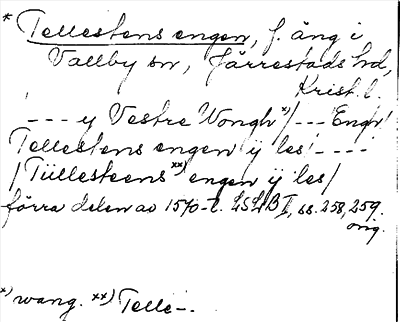 * Tellestens engen, f. äng i
Vallby sn, Järrestads hd,
Krist. l.
'--- y Vestre Wongh*)/---Engr'
Tellestens engen ÿ les' ----
/Tüllesteens**) engen ÿ les/
förra delen av 1570-t. LSLB I, ss. 258, 259.
orig.
*) wang. **) Telle-.